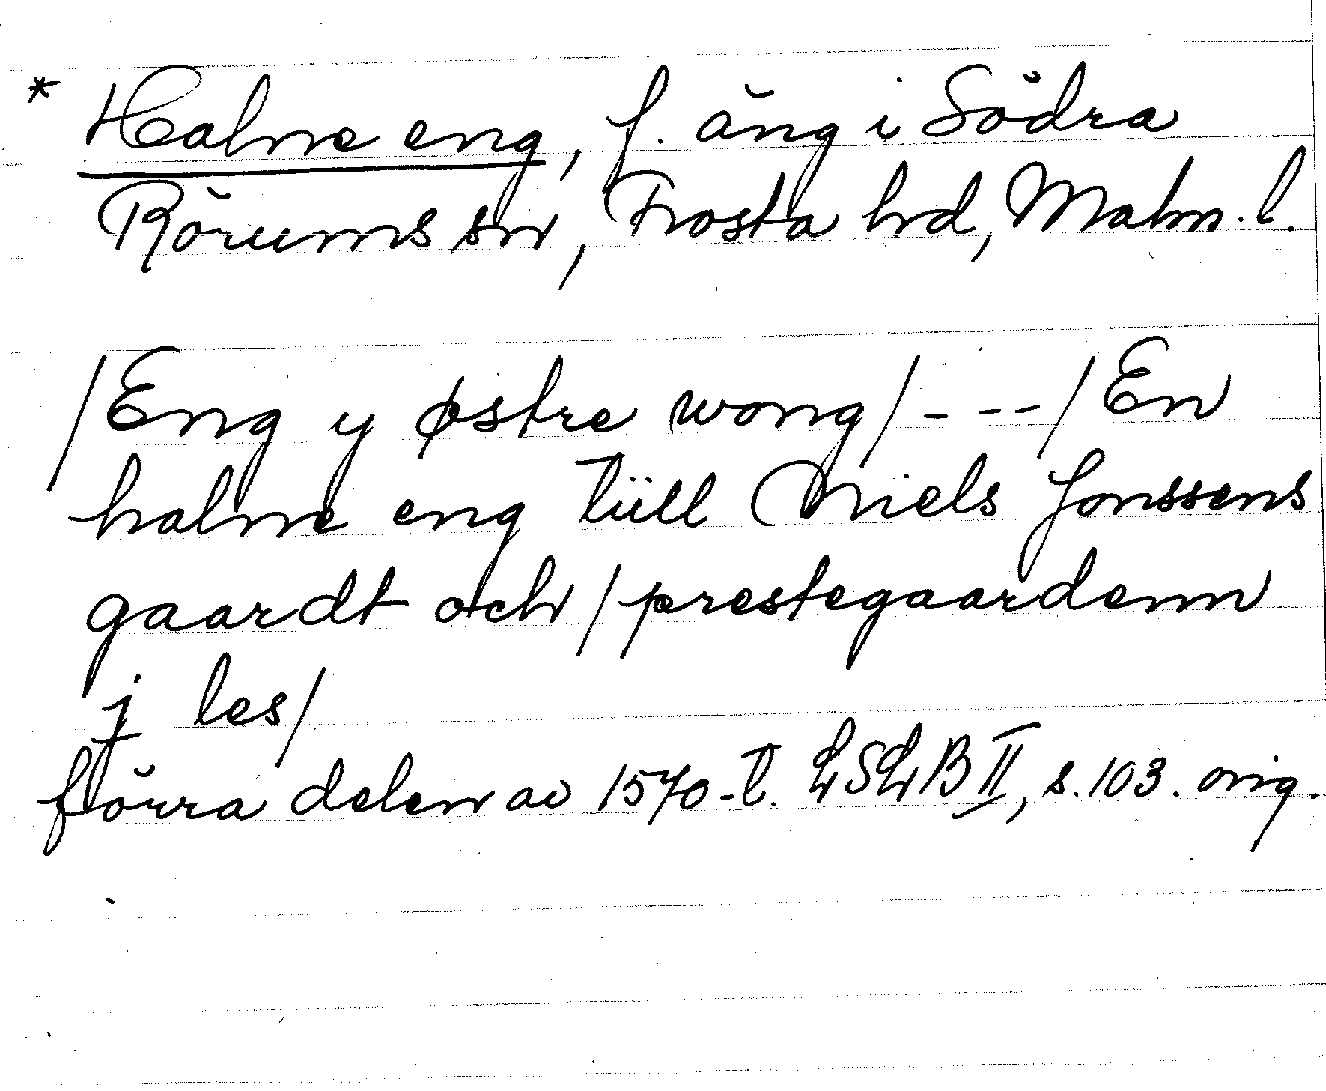 * Halme eng, f. äng i Södra
Rörums sn, Frosta hd, Malm. l.
/Eng y østre wong/---/En
halme eng tüll Niels Jonssens
gaardt och/prestegaardenn
j les/
förra delen av 1570-t. LSLB II, s. 103. orig.